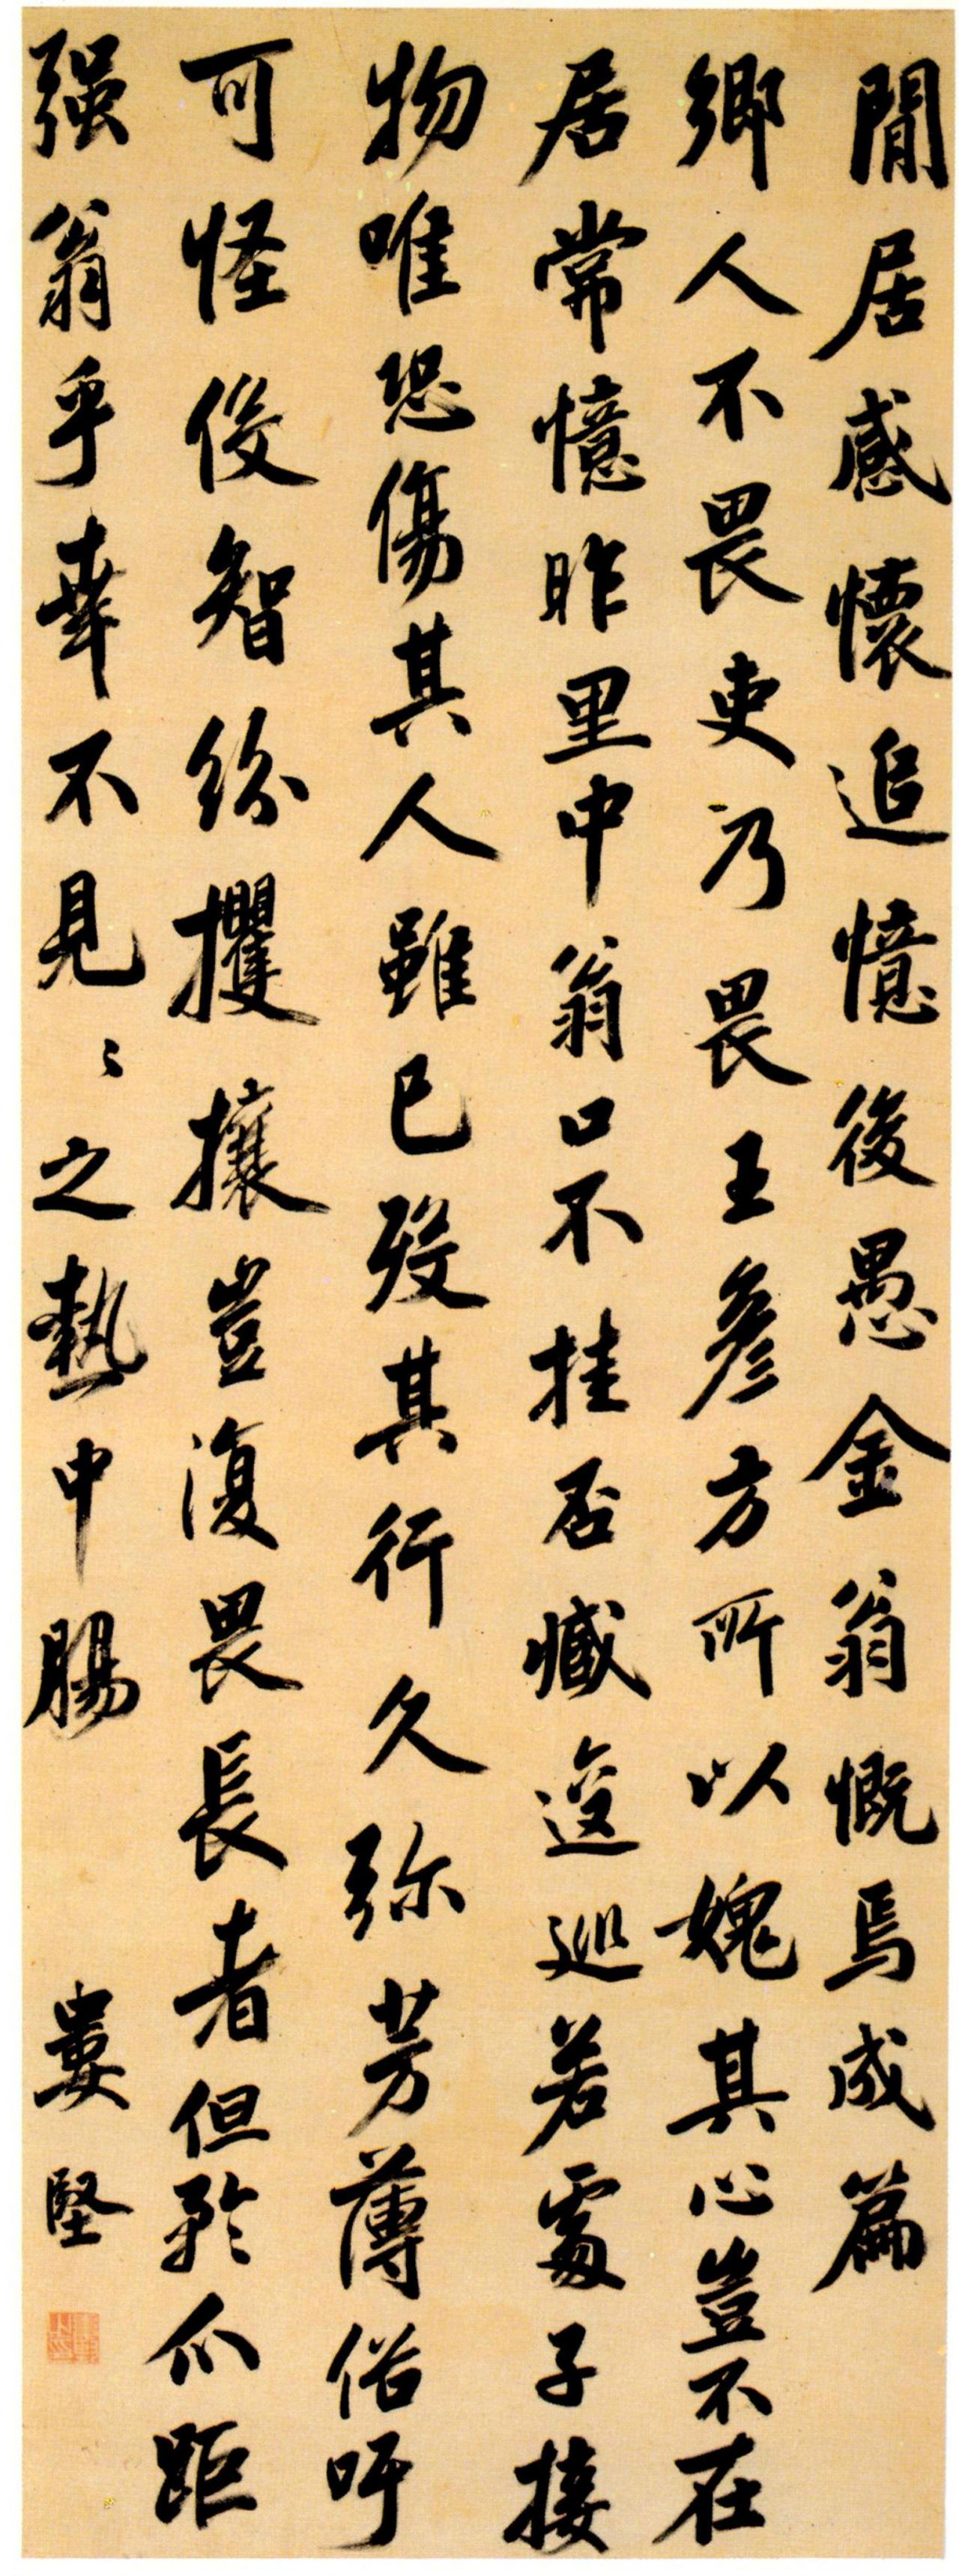 閒居感懷追憶後愚金翁慨焉成篇
鄉人不畏吏乃畏王彥方所以媿其心豈不在
居常憶昨里中翁口不挂否臧逡巡若處子接
物唯恐傷其人雖已歿其行久弥芳薄俗吁
可怪役智紛攫攘豈復畏長者但矜爪距
强翁乎幸不見〻之熱中腸
婁堅